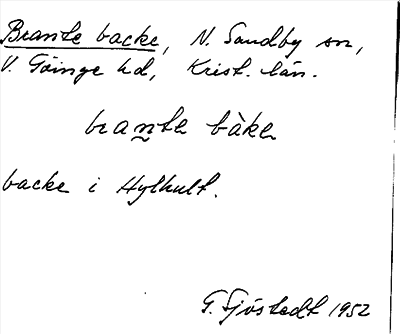 Brante backe, N. Sandby sn,
V. Göinge hd, Krist. län.
brante bàkə
backe i Hylhult.
G. Sjöstedt 1952